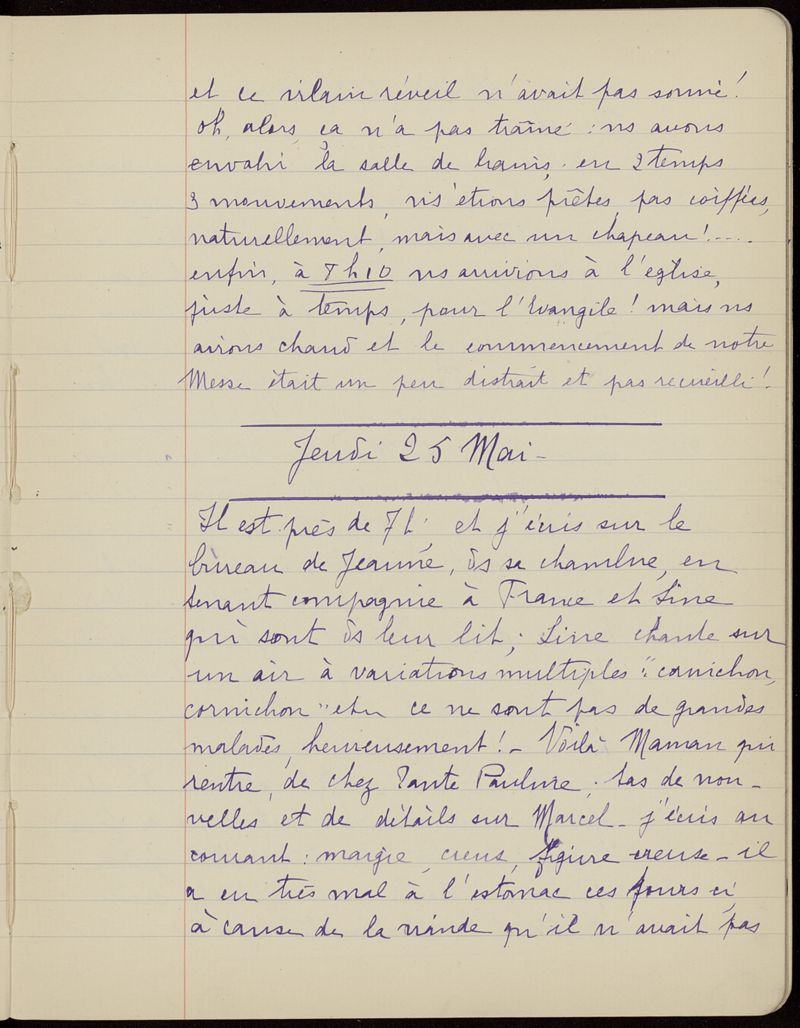 et ce vilain réveil n'avait pas sonné !
oh, alors ça n'a pas traîné : ns avons
envahi la salle de bains, en 2 temps
3 mouvements, ns étions prêtes, pas coiffées,
naturellement, mais avec un chapeau ! ....
enfin, à 7h10 ns arrivions à l'église,
juste à temps, pour l'Evangile ! mais ns
avions chaud et le commencement de notre
Messe était un peu distrait et pas recueilli !
Jeudi 25 Mai -
Il est près de 7h, et j'écris sur le
bureau de Jeanne, ds sa chambre, en
tenant compagnie à France et Line
qui sont ds leur lit ; Line chante sur
un air à variations multiples : "cornichon,
cornichon" etc ce ne sont pas de grandes
malades, heureusement ! - Voilà Maman qui
rentre, de chez Tante Pauline ; tas de nou-
velles et de détails sur Marcel - j'écris au
courant : maigre, creux, figure creuse - il
a eu très mal à l'estomac ces jours ci,
à cause de la viande qu'il n'avait pas